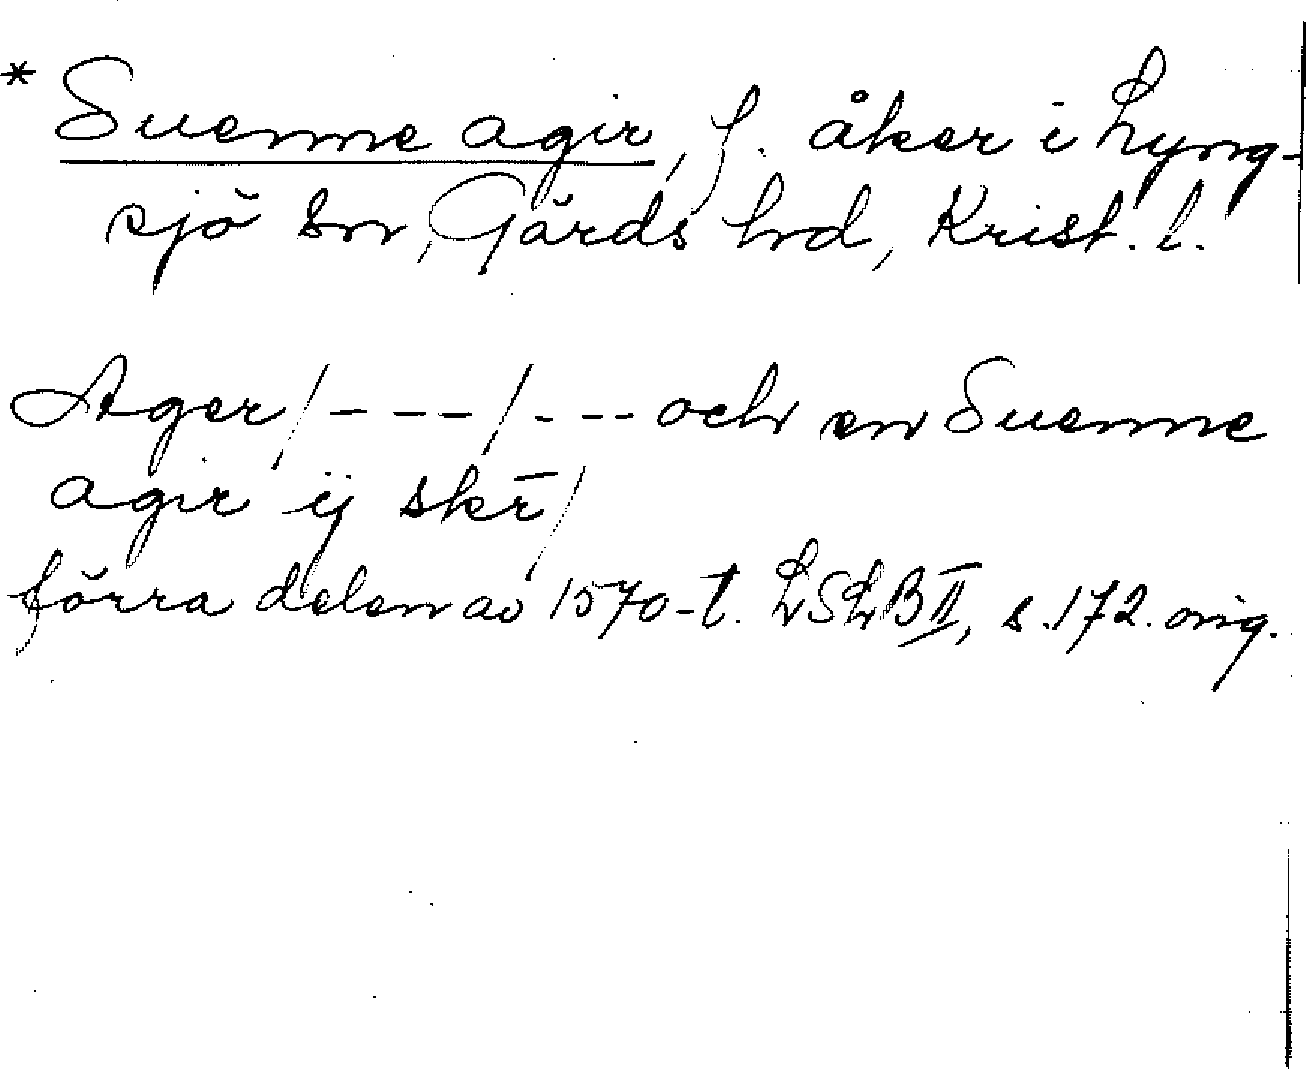 * Suenne agir, f. åker i Lyng-
sjö sn, Gärds hd, Krist. l.
Ager / - - - / - - - och en Suenne
agir ij skr̄ /
förra delen av 1570-t. LSLB II, s. 172. orig.